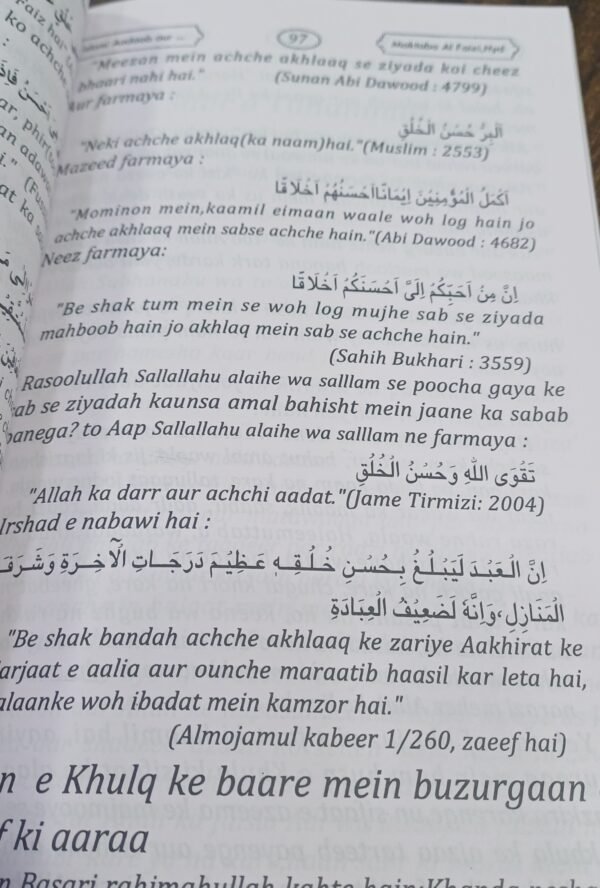 97
Maktaba Al Faizi, Hyd
"Meezan mein achche akhlaaq se ziyada koi cheez
bhaari nahi hai." (Sunan Abi Dawood : 4799)
aur farmaya :
اَلْبِرُّ حُسْنُ الْخُلُقِ
"Neki achche akhlaq(ka naam)hai."(Muslim : 2553)
Mazeed farmaya :
اَكْمَلُ الْمُؤْمِنِيْنَ اِيْمَانًااَحْسَنُهُمْ اَخْلَاقًا
"Mominon mein,kaamil eimaan waale woh log hain jo
achche akhlaaq mein sabse achche hain."(Abi Dawood : 4682)
Neez farmaya:
اِنَّ مِنْ اَحَبِّكُمْ اِلَىَّ اَحْسَنَكُمْ اَخْلَاقًا
"Be shak tum mein se woh log mujhe sab se ziyada
mahboob hain jo akhlaq mein sab se achche hain."
(Sahih Bukhari : 3559)
Rasoolullah Sallallahu alaihe wa salllam se poocha gaya ke
sab se ziyadah kaunsa amal bahisht mein jaane ka sabab
banega? to Aap Sallallahu alaihe wa salllam ne farmaya :
تَقْوَى اللّٰهِ وَحُسْنُ الْخُلُقِ
"Allah ka darr aur achchi aadat."(Jame Tirmizi: 2004)
Irshad e nabawi hai :
اِنَّ الْعَبْدَ لَيَبْلُغُ بِحُسْنِ خُلُقِهٖ عَظِيْمَ دَرَجَاتِ الْآخِرَةِ وَشَرَفَ
الْمَنَازِلِ،وَاِنَّهٗ لَضَعِيْفُ الْعِبَادَةِ
"Be shak bandah achche akhlaaq ke zariye Aakhirat ke
arjaat e aalia aur ounche maraatib haasil kar leta hai,
alaanke woh ibadat mein kamzor hai."
(Almojamul kabeer 1/260, zaeef hai)
n e Khulq ke baare mein buzurgaan
f ki aaraa
n Basari rahimahullah kahte hain: